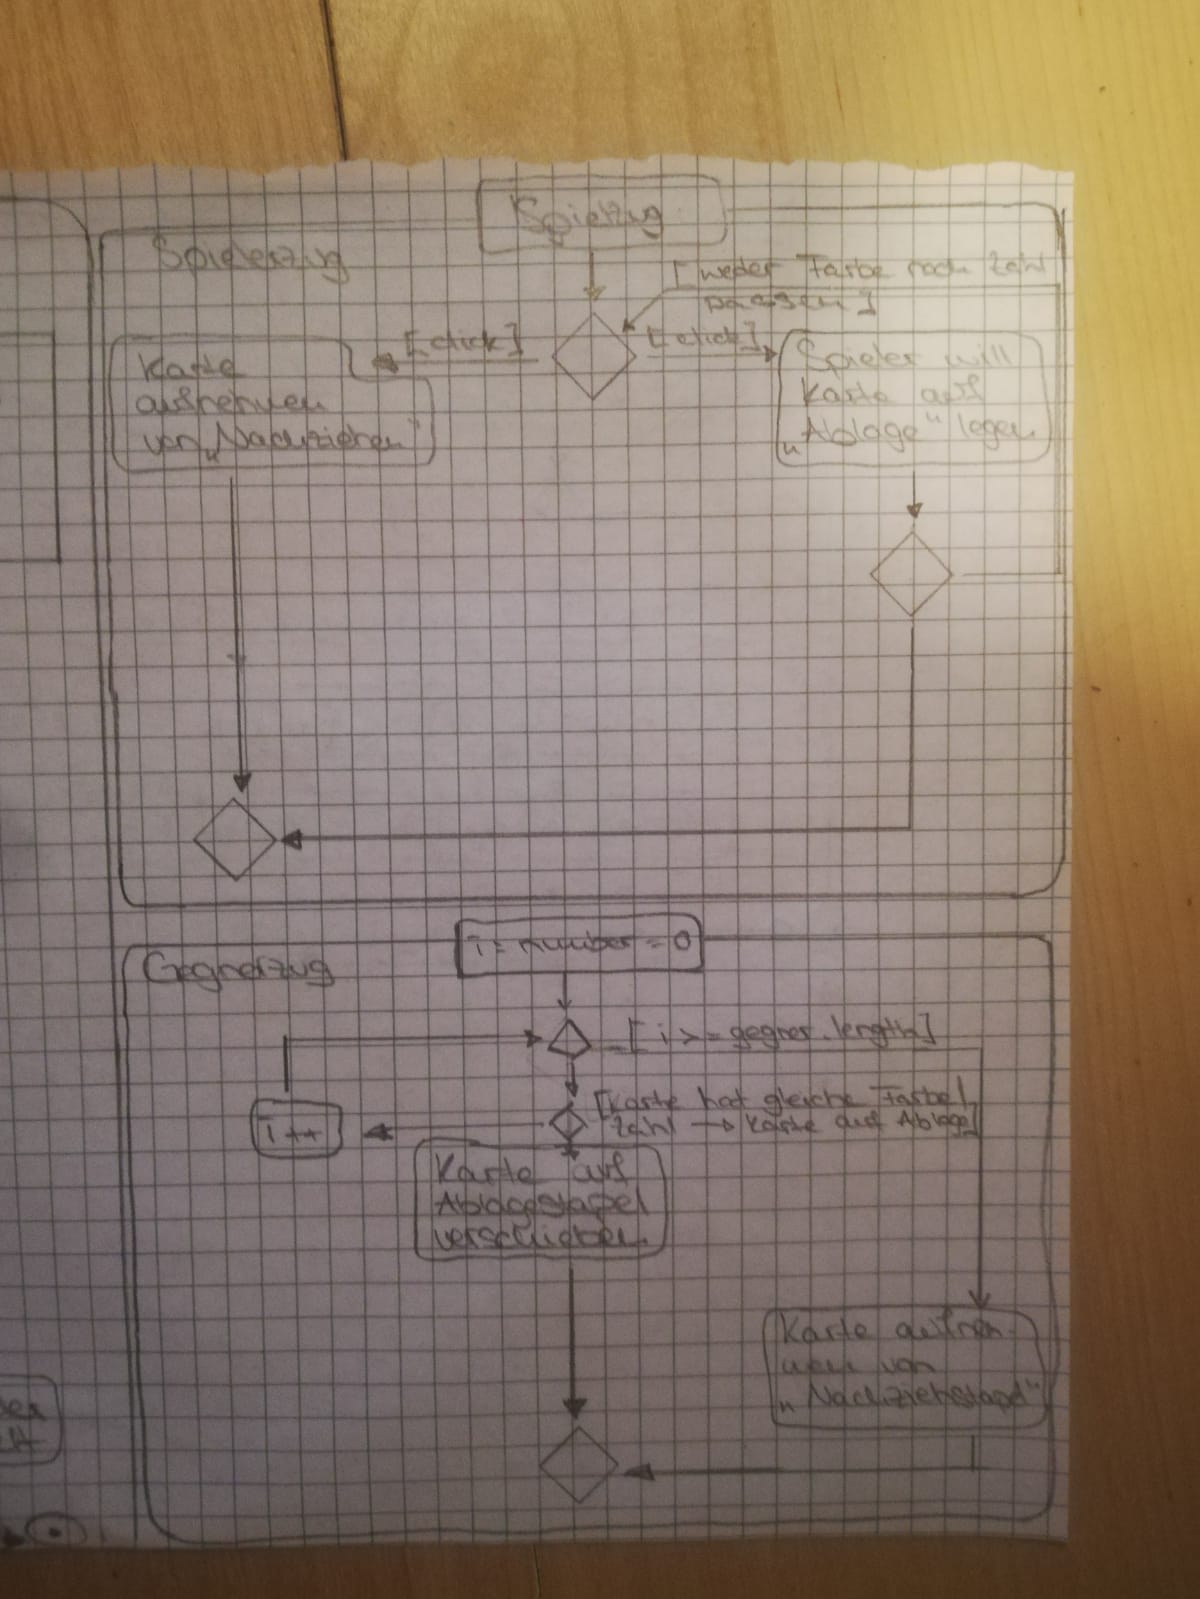 Spielzug
Spielerzug
[weder Farbe noch Zahl
passen]
[click]
[click]
Karte
aufnehmen
von „Nachziehen"
Spieler will
Karte auf
„Ablage" legen
i = number = 0
Gegnerzug
[i >= gegner.length]
[Karte hat gleiche Farbe/
Zahl → Karte auf Ablage]
i ++
Karte auf
Ablagestapel
verschieben
Karte aufneh-
men von
„Nachziehstapel"